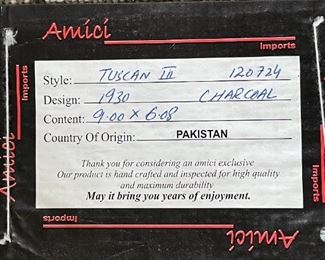 Amici
Imports
Style: TUSCAN III 120724
Design: 1930 CHARCOAL
Content: 9.00 X 6.08
Country Of Origin: PAKISTAN
Thank you for considering an amici exclusive
Our product is hand crafted and inspected for high quality
and maximum durability
May it bring you years of enjoyment.
Amici
Imports
Amici
Imports
Imports
Amici